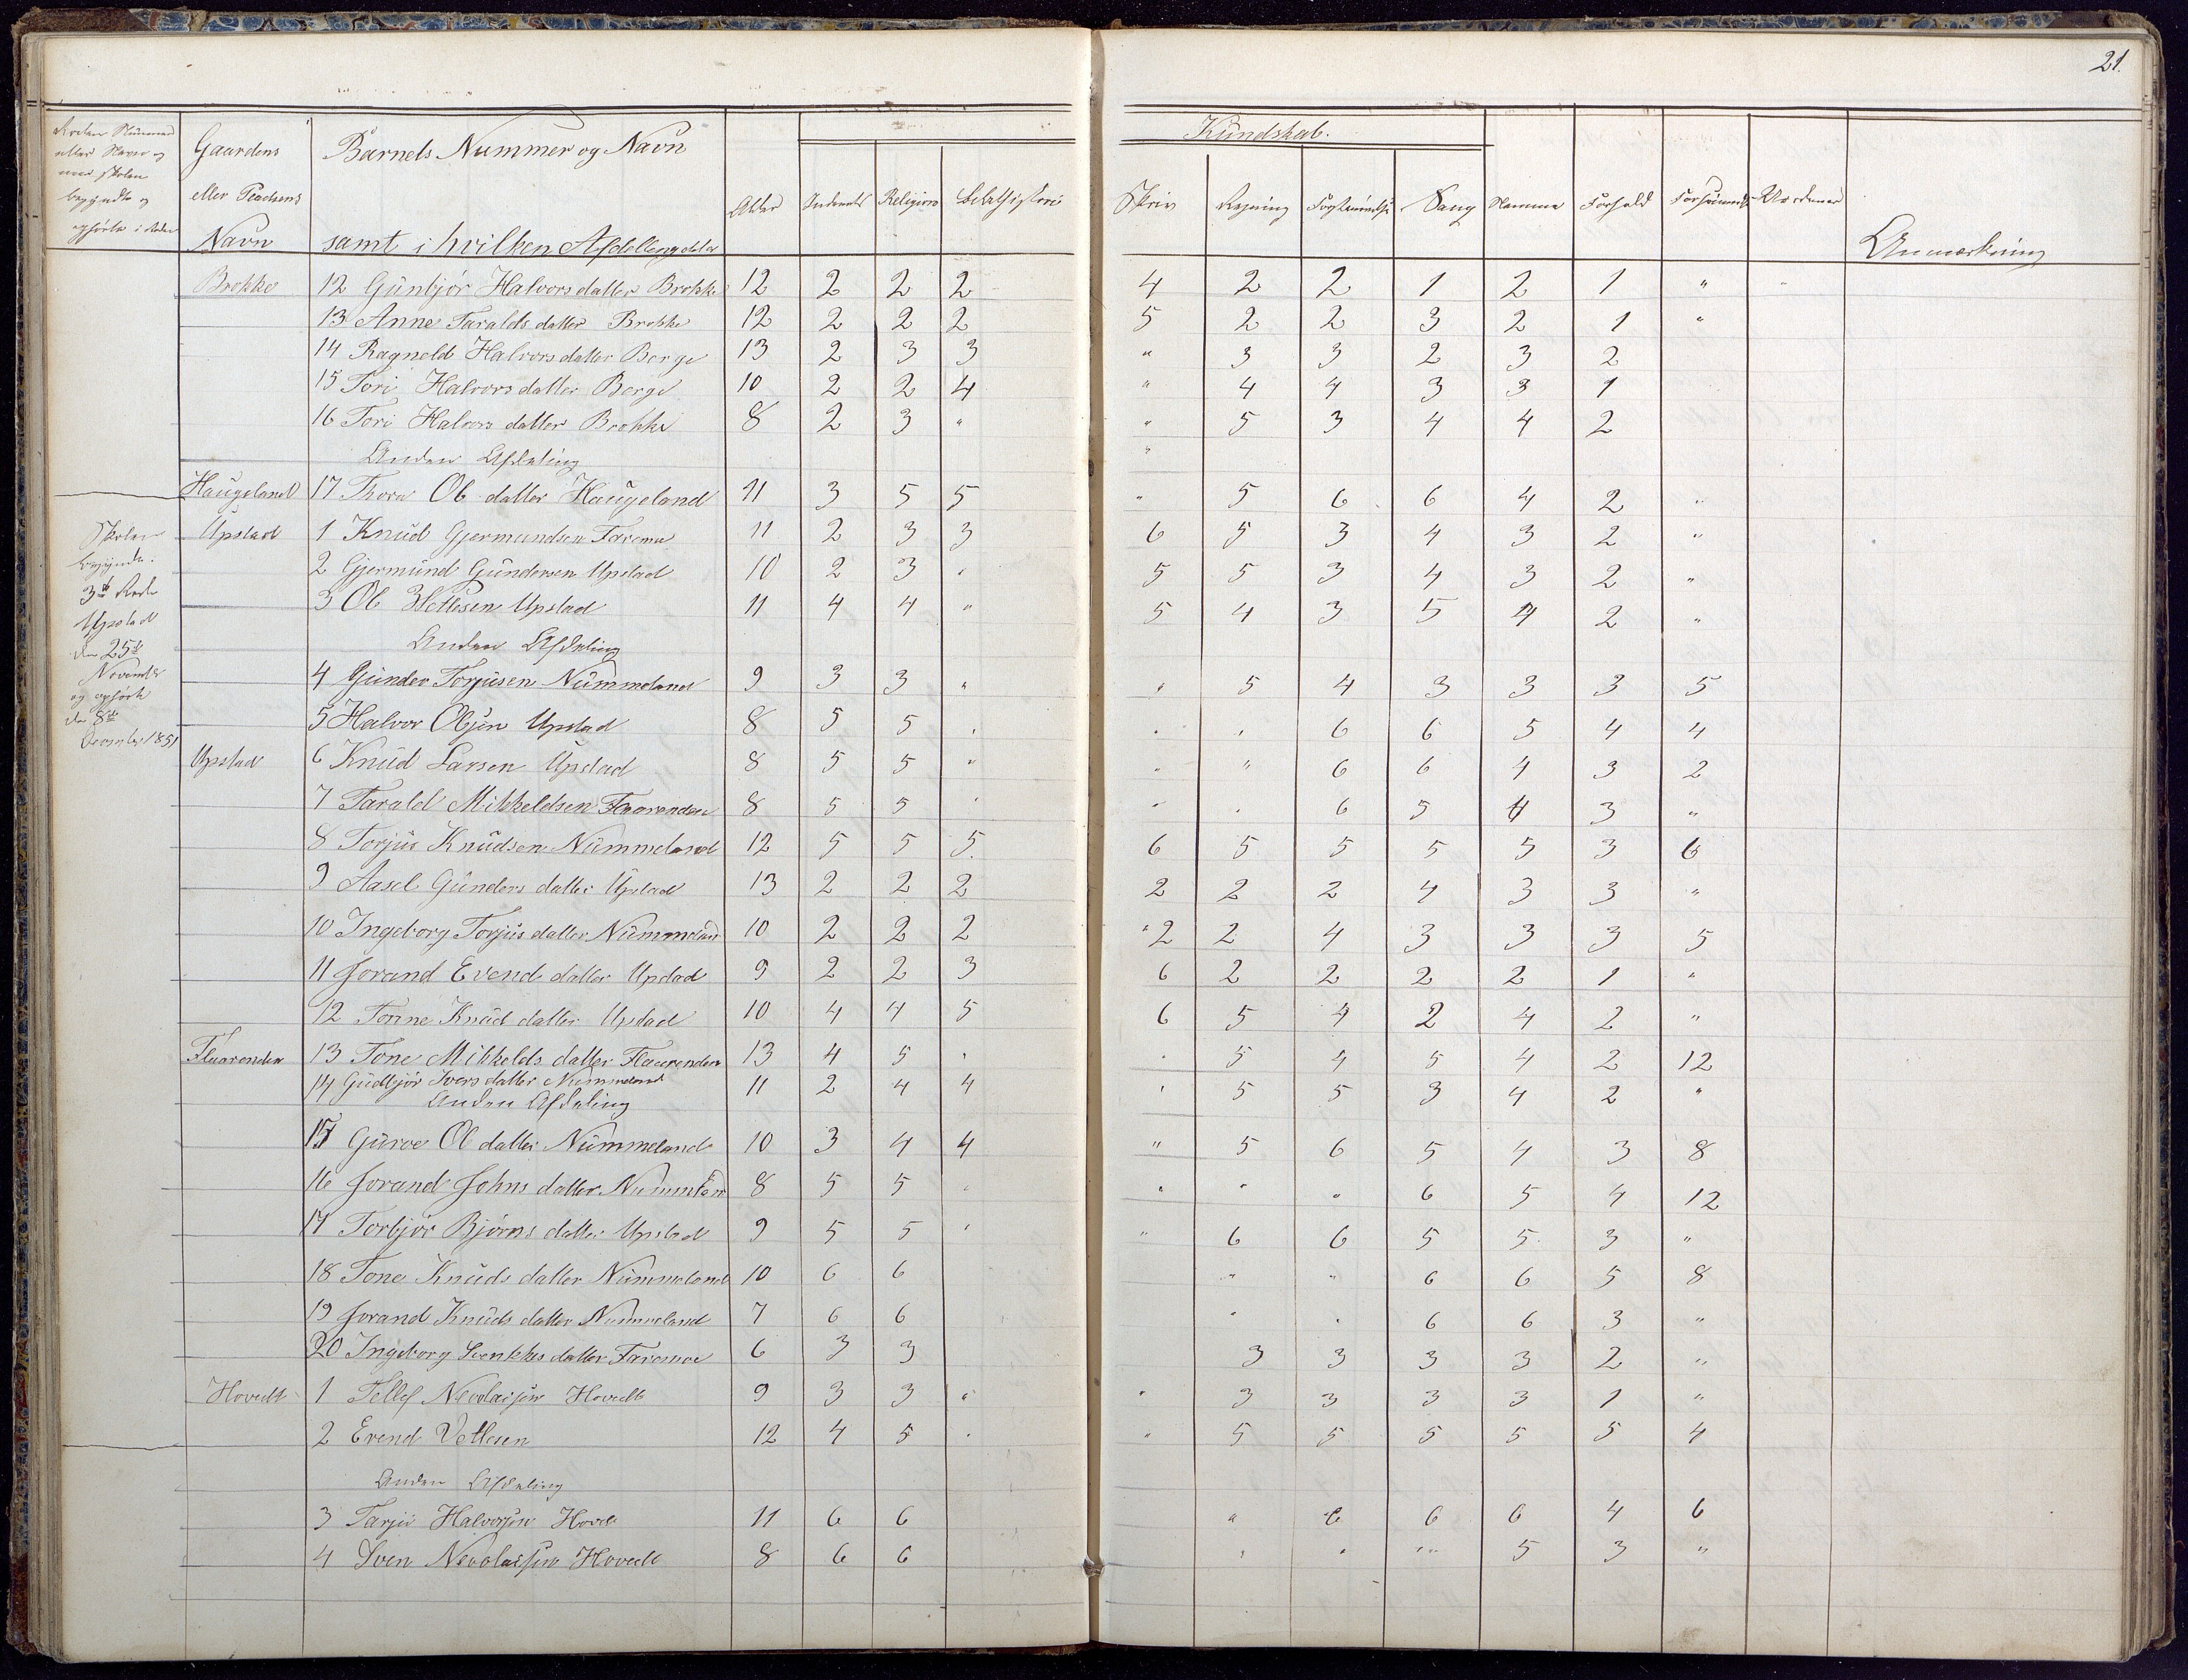 21.
Gaardens
eller Pladsens
Navn
Barnets Nummer og Navn
samt i hvilken Afdelling
Alder
Religion
Kundskab.
Skriv
Regning
Sang
Nemme
Forhold
Anmærkning
Brokke 12 Gunbjör Halvorsdatter Brokke 12 2 2 2 4 2 2 1 2 1 "
13 Anne Taralds datter Brokke 12 2 2 2 5 2 2 3 2 1 "
14 Ragneld Halvorsdatter Berge 13 2 3 3 " 3 3 2 3 2
15 Tori Halvorsdatter Berge 10 2 2 4 " 4 4 3 3 1
16 Tori Halvors datter Brokke 8 2 3 " " 5 3 4 4 2
Anden Afdeling "
Haugeland 17 Thora Ol datter Haugeland 11 3 5 5 " 5 6 6 4 2 "
Skolen
begyndte
3die Rode
Upstad
den 25de
November
og ophörte
den 8de
December 1851
Upstad 1 Knud Gjermundsen Faremo 11 2 3 3 6 5 3 4 3 2 "
2 Gjermund Gundersen Upstad 10 2 3 " 5 5 3 4 3 2 "
3 Ol Wetlesen Upstad 11 4 4 " 5 4 3 5 4 2 "
Anden Afdeling
4 Gunder Torjusen Nummeland 9 3 3 " " 5 4 3 3 3 5
5 Halvor Olsen Upstad 8 5 5 " " " 6 6 5 4 4
Upstad 6 Knud Larsen Upstad 8 5 5 " " " 6 6 4 3 2
7 Tarald Mikkeldsen Flaarenden 8 5 5 " " " 6 5 4 3 "
8 Torjus Knudsen Nummeland 12 5 5 5. 6 5 5 5 5 3 6
9 Aasel Gunders datter Upstad 13 2 2 2 2 2 2 4 3 3 "
10 Ingeborg Torjus datter Nummeland 10 2 2 2 " 2 2 4 3 3 3 5
11 Jorand Evend datter Upstad 9 2 2 3 6 2 2 2 2 1 "
12 Tonne Knud datter Upstad 10 4 4 5 6 5 4 2 4 2 "
Flaarenden 13 Tone Mikkelds datter Flaarenden 13 4 5 " " 5 4 5 4 2 12
14 Gudbjör Ivers datter Nummeland 11 2 4 4 " 5 5 3 4 2 "
Anden Afdeling
15 Guroe Ol datter Nummeland 10 3 4 4 " 5 6 5 4 3 8
16 Jorand Johns datter Nummland 8 5 5 " " " " 6 5 4 12
17 Torbjör Bjorns datter Upstad 9 5 5 " " 6 6 5 5 3 "
18 Tone Knuds datter Nummeland 10 6 6 " " 6 6 5 8
19 Jorand Knuds datter Nummeland 7 6 6 " " 6 6 3 "
20 Ingeborg datter Faremoe 6 3 3 3 3 3 3 2 "
Hovedt 1 Tellef Nicolaisen Hovedt 9 3 3 " " 3 3 3 3 1 "
2 Evend Vetlesen 12 4 5 " " 5 5 5 5 5 4
Anden Afdeling
3 Tarjei Halvorsen Hovet 11 6 6 " 6 6 6 4 6
4 Sven Nicolaisen Hovedt 8 6 6 " " " 5 3 "